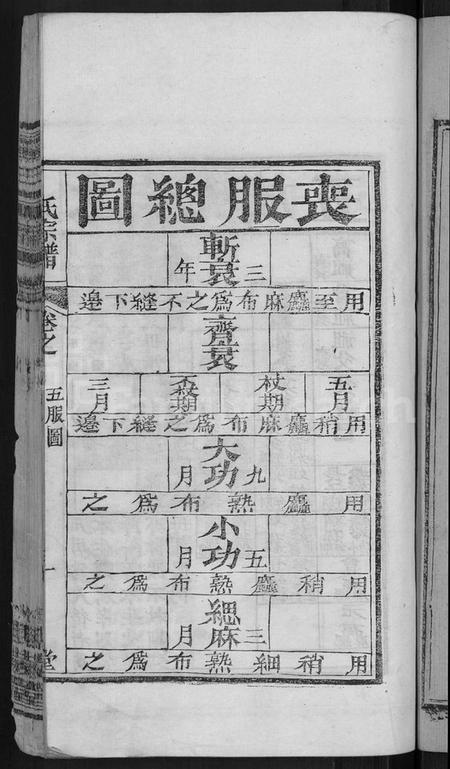 喪服總圖
斬衰
三年
用至麤麻布為之不縫下邊
齊衰
五月 杖期 不杖期 三月
用稍麤麻布為之縫下邊
大功
九月
用麤熟布為之
小功
五月
用稍麤熟布為之
緦麻
三月
用稍細熟布為之
氏宗譜
卷之
五服圖
一
堂